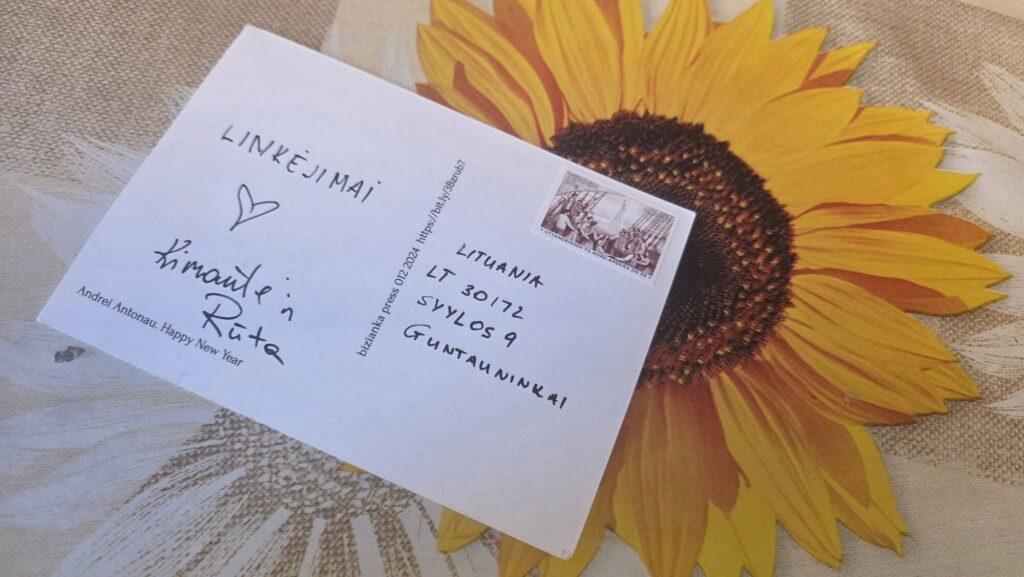 LINKĖJIMAI
Rūta
Andrei Antonau. Happy New Year
bizianka press 012 2024 https://bit.ly/38zrub7
LITUANIA
LT 30172
SVYLOS 9
GUNTAUNINKAI